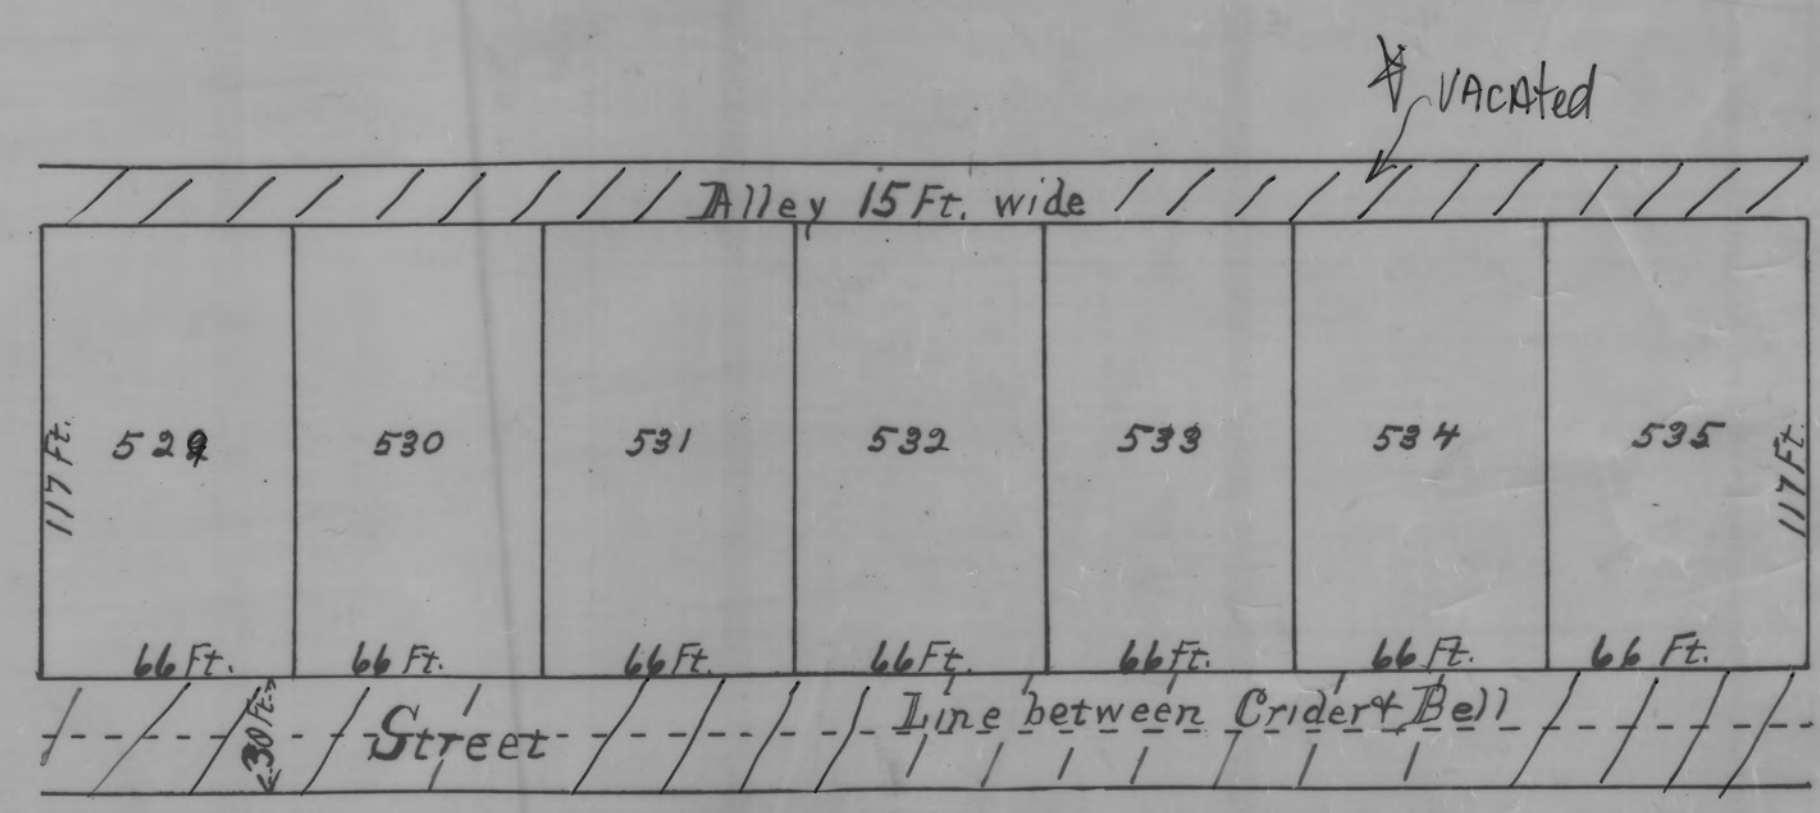 VACAted
Alley 15 Ft. wide
117 Ft.
529
530
531
532
533
534
535
117 Ft.
66 Ft.
66 Ft.
66 Ft.
66 Ft.
66 Ft.
66 Ft.
66 Ft.
30 Ft.
Street
Line between Crider & Bell